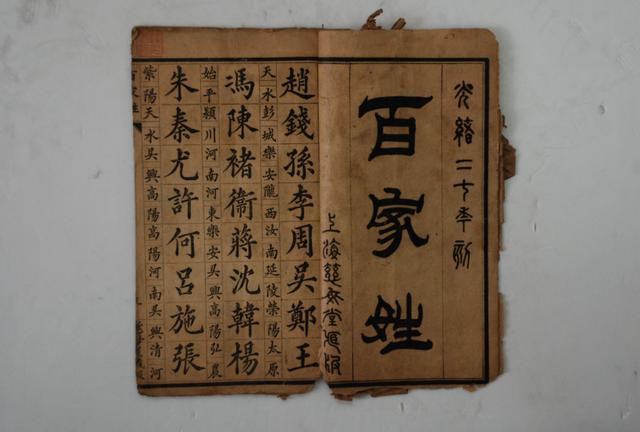 光緒二七年
百家姓
上海慈母堂
趙錢孫李周吳鄭王
天水彭城樂安隴西汝南延陵滎陽太原
馮陳褚衞蔣沈韓楊
始平潁川河南河東樂安吳興高陽弘農
朱秦尤許何呂施張
紫陽天水吳興高陽高陽河南吳興清河
百家姓